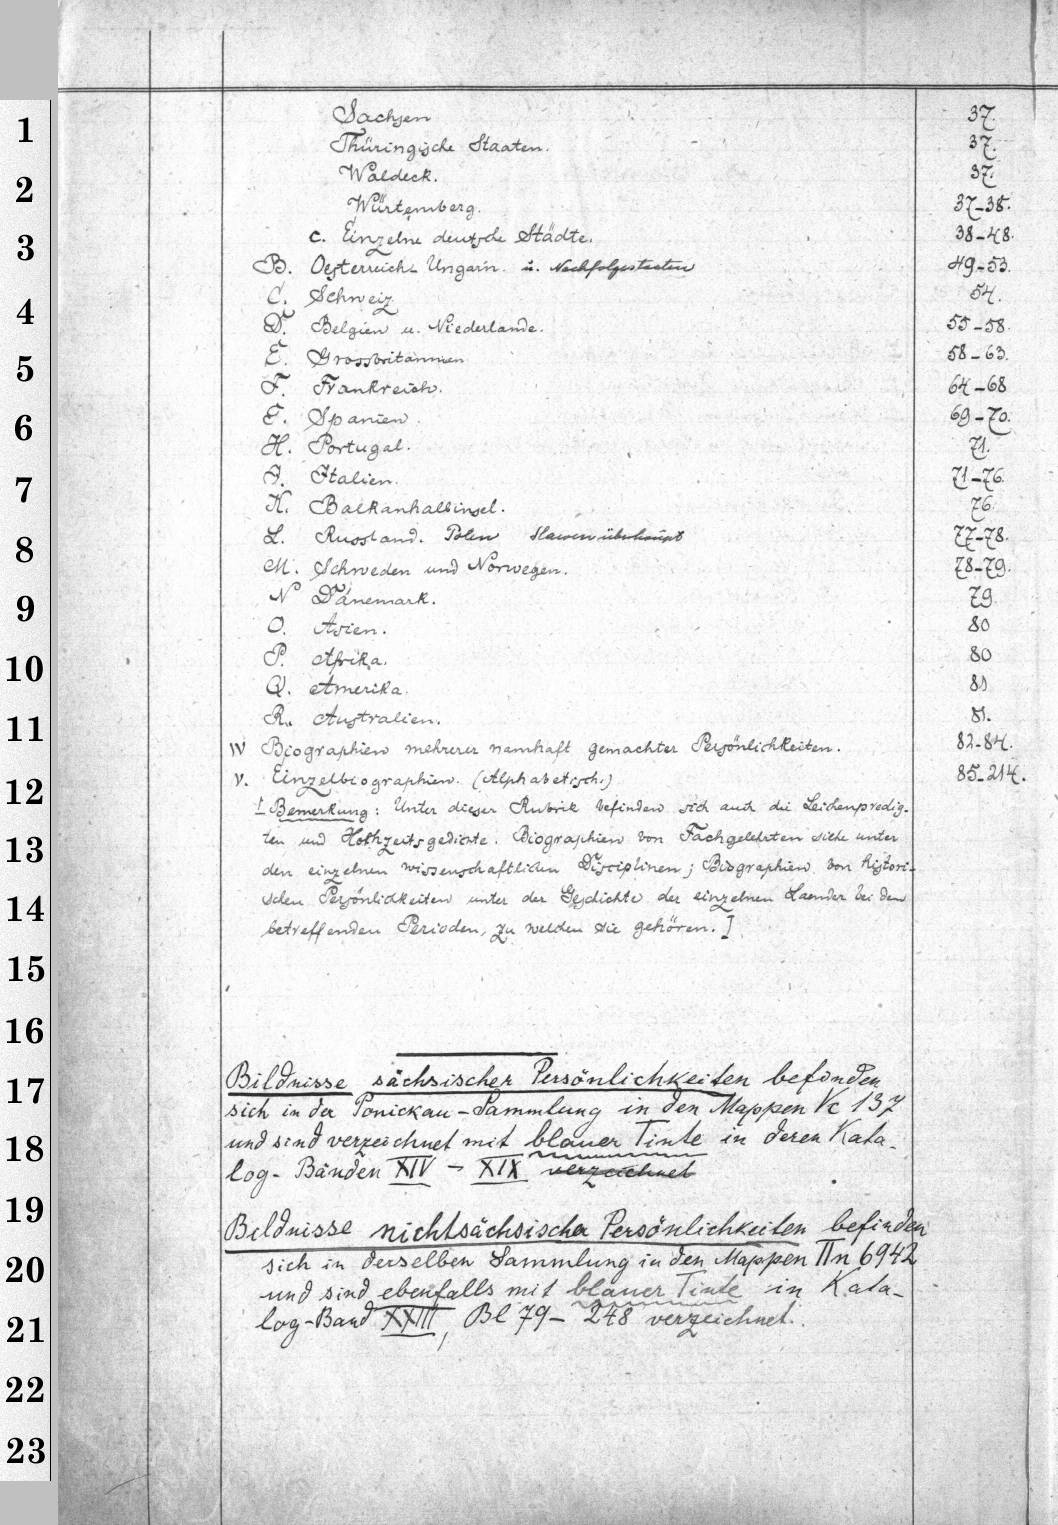 Sachsen 37.
Thüringische Staaten. 37.
1
Waldeck. 37.
2
Würtemberg. 37-38.
c. Einzelne deutsche Städte. 38-48.
3
B. Oesterreich-Ungarn. u. Nachfolgestaaten 49-53.
C. Schweiz 54.
4
D. Belgien u. Niederlande. 55-58.
E. Grossbritannien 58-63.
5
F. Frankreich. 64-68
G. Spanien. 69-70.
6
H. Portugal. 71.
I. Italien. 71-76.
7
K. Balkanhalbinsel. 76.
L. Russland. Polen Slawen überhaupt 77-78.
8
M. Schweden und Norwegen. 78-79.
N Dänemark. 79
9
O. Asien. 80
P. Afrika. 80
10
Q. Amerika. 81
R. Australien. 81.
11
IV Biographien mehrerer namhaft gemachter Persönlichkeiten. 82-84.
V. Einzelbiographien. (Alphabetisch.) 85-214.
12
[Bemerkung: Unter dieser Rubrik befinden sich auch die Leichenpredig-
ten und Hochzeitsgedichte. Biographien von Fachgelehrten siehe unter
13
den einzelnen wissenschaftlichen Disciplinen; Biographien von histori-
schen Persönlichkeiten unter der Geschichte der einzelnen Laender bei den
14
betreffenden Perioden, zu welchen sie gehören.]
15
16
Bildnisse sächsischer Persönlichkeiten befinden
17
sich in der Ponickau-Sammlung in den Mappen Vc 137
und sind verzeichnet mit blauer Tinte in deren Kata-
18
log-Bänden XIV - XIX verzeichnet
19
Bildnisse nichtsächsischer Persönlichkeiten befinden
sich in derselben Sammlung in den Mappen IIn 6942
20
und sind ebenfalls mit blauer Tinte in Kata-
log-Band XXIII, Bl 79-248 verzeichnet.
21
22
23